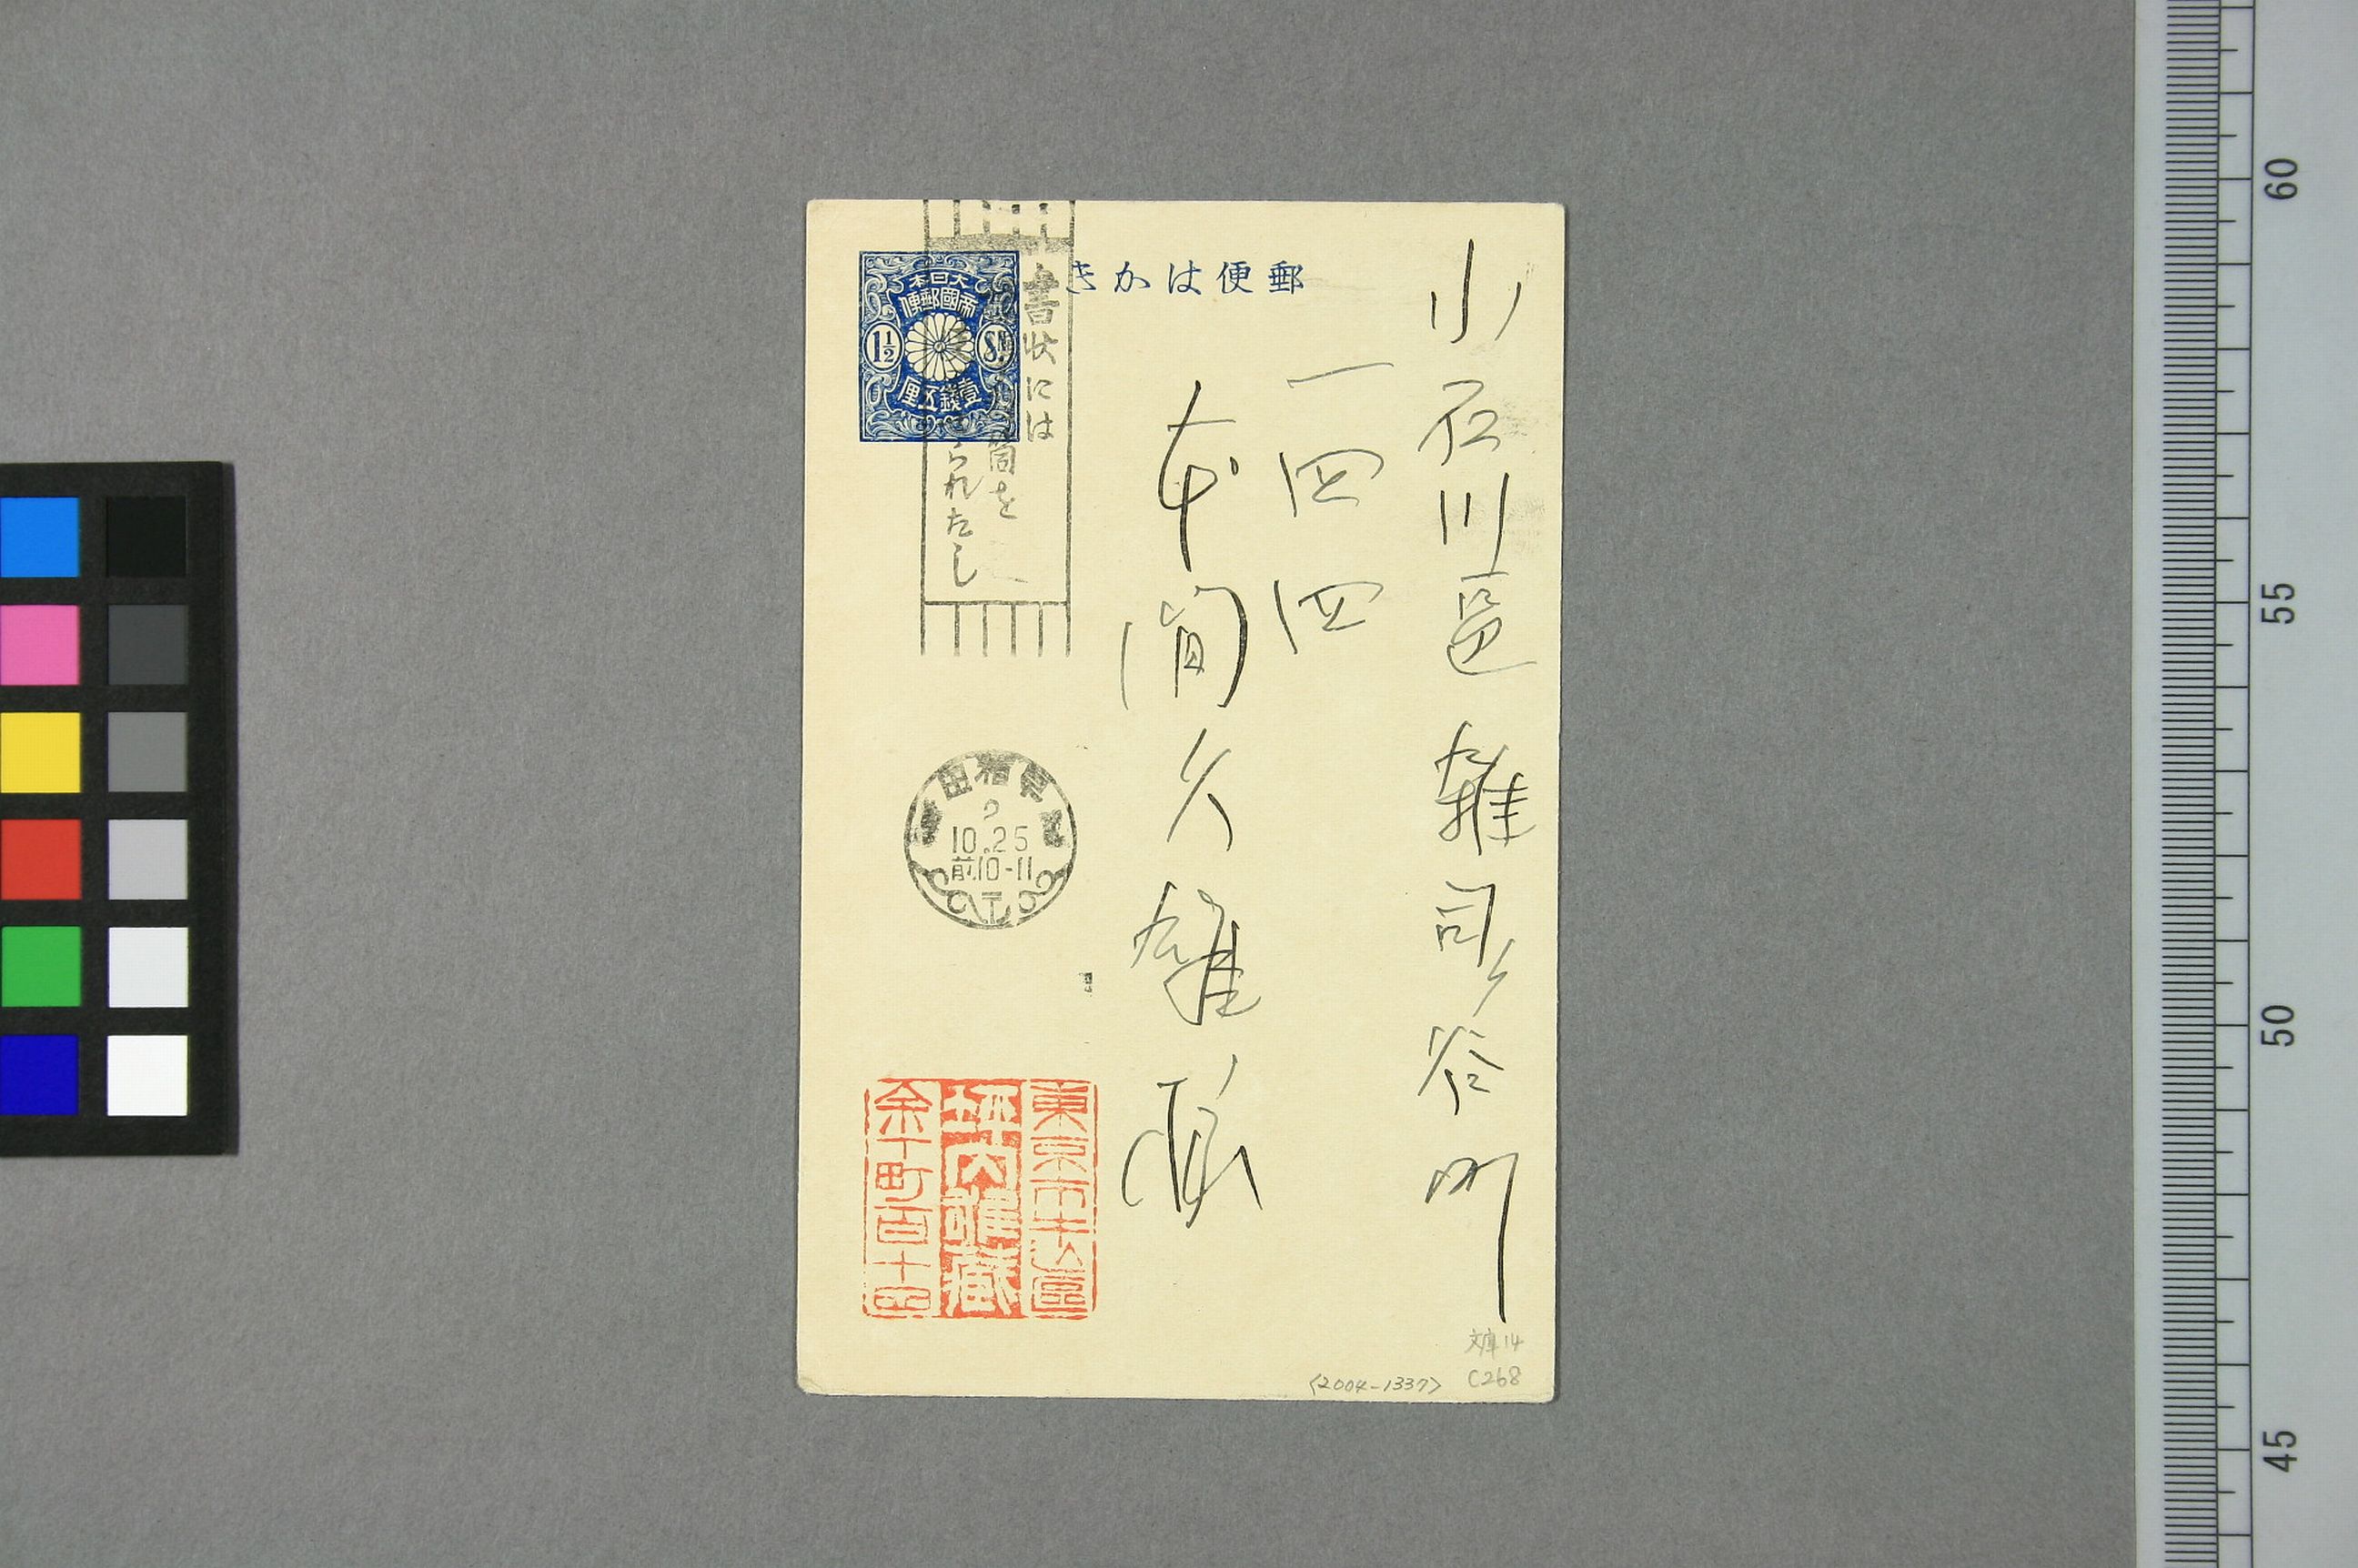 郵便はかき
大日本
帝國郵便
1½ Sⁿ
壹錢五厘
書状には
筒を
られたし
小石川區雑司ヶ谷町
一四四
本間久雄様
早稲田
2
10.25
前10-11
東京市牛込區
坪内雄藏
余丁町百十四
文庫14
C268
<2004-1337>
60
55
50
45